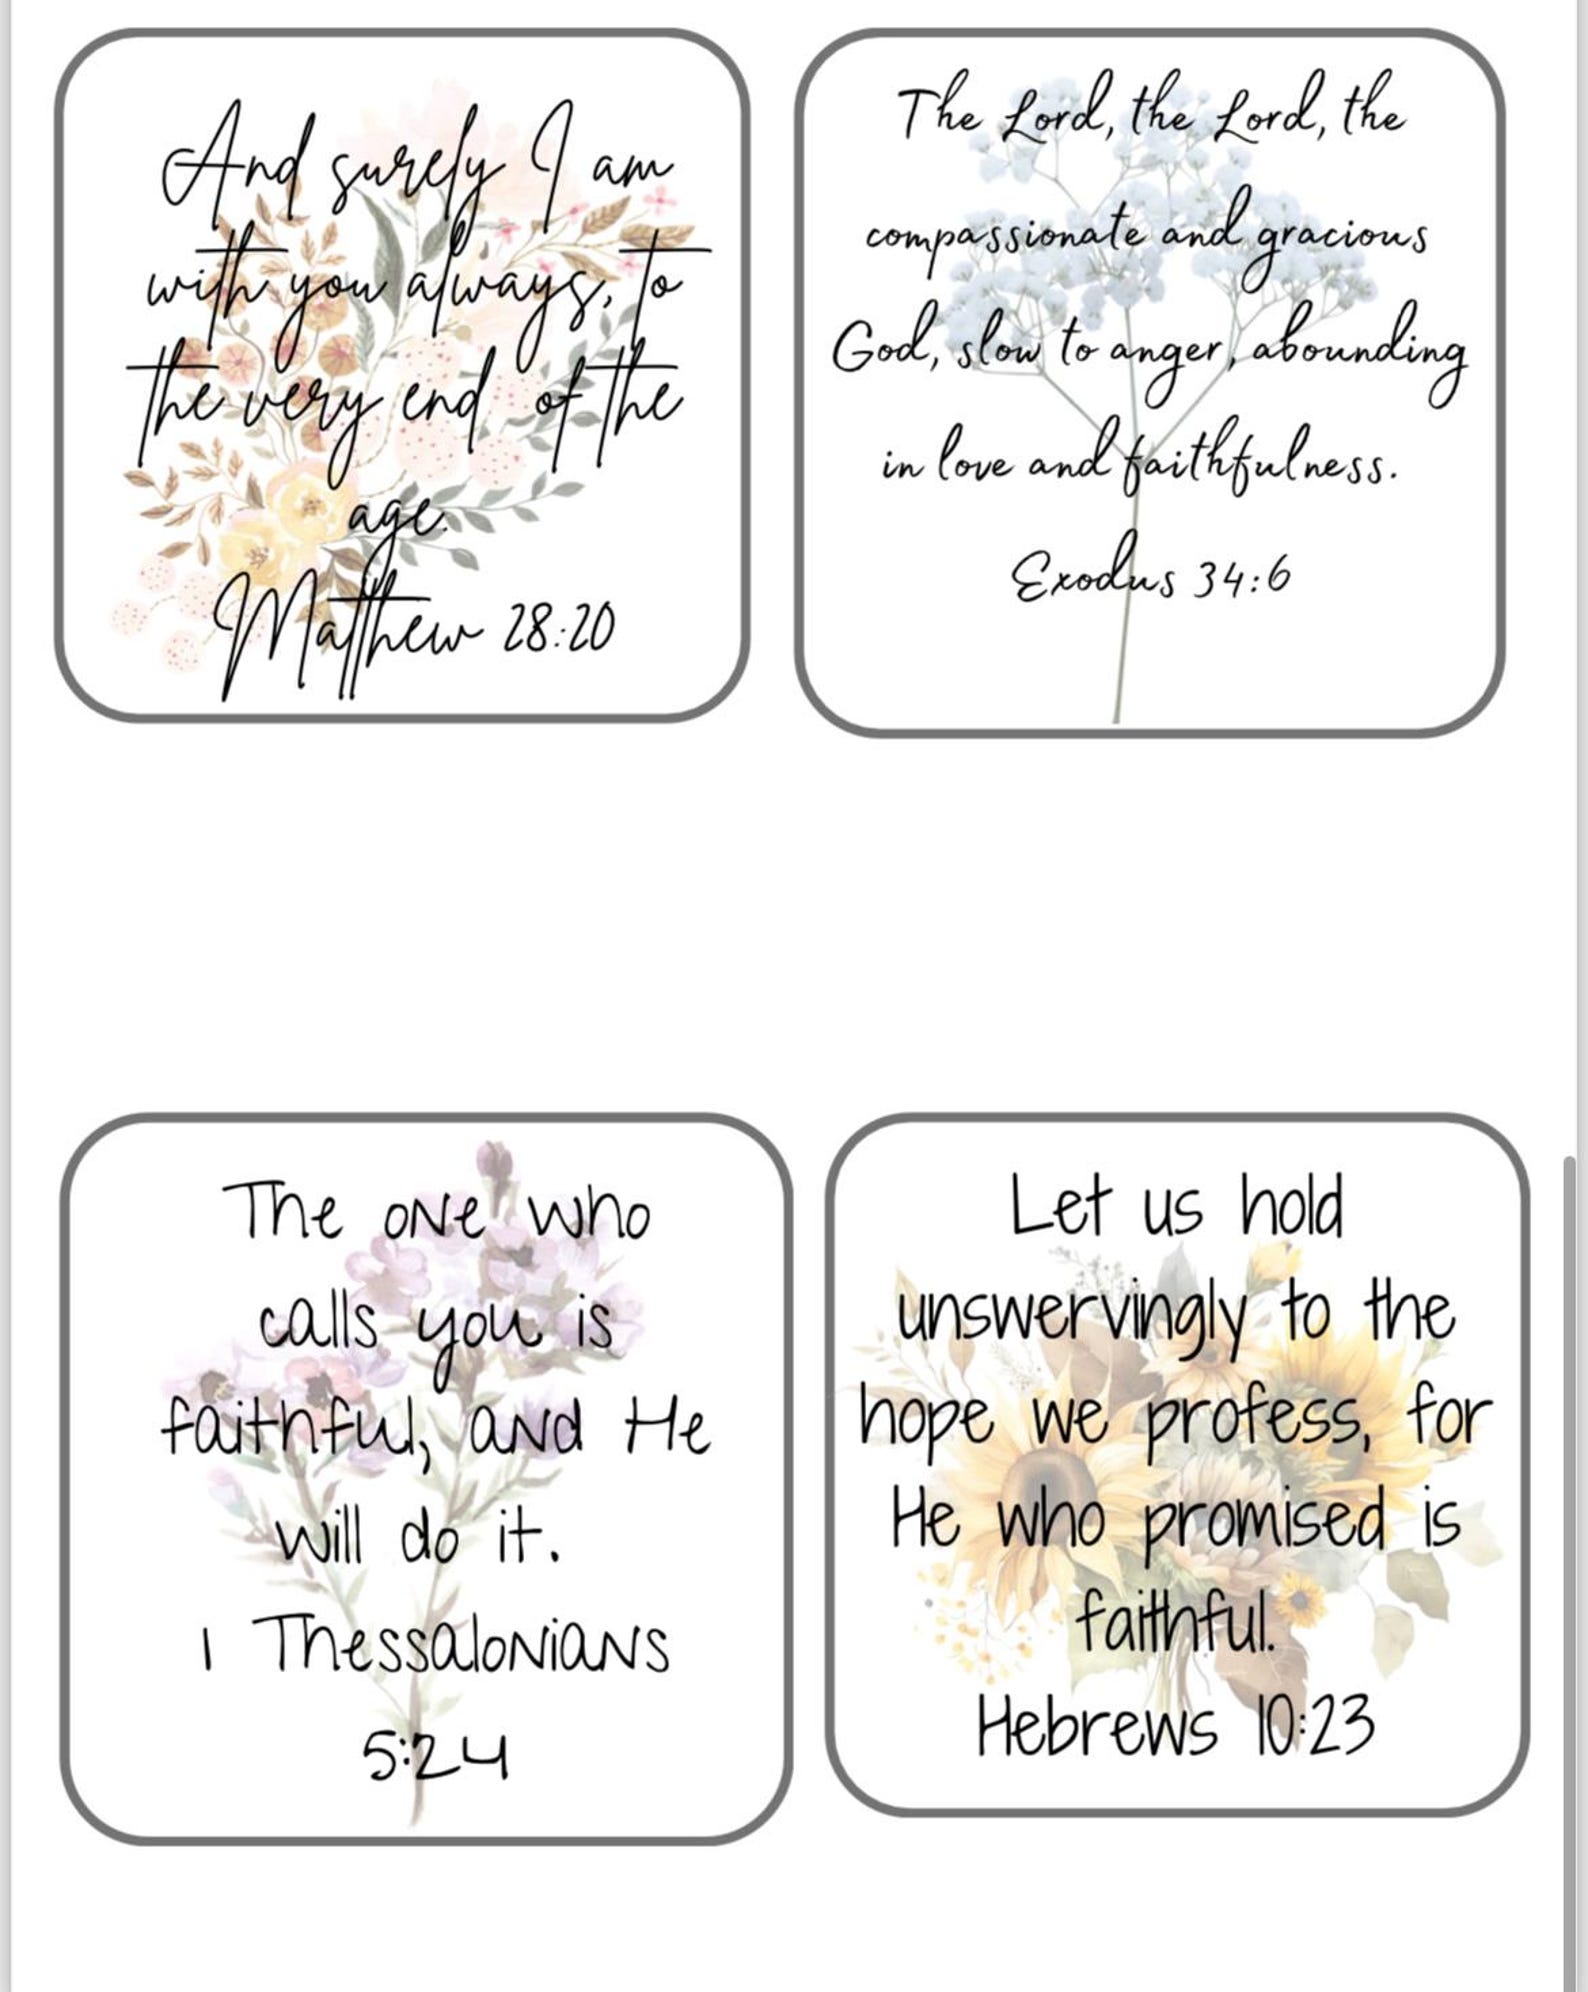 And surely I am
with you always, to
the very end of the
age.
Matthew 28:20
The Lord, the Lord, the
compassionate and gracious
God, slow to anger, abounding
in love and faithfulness.
Exodus 34:6
The one who
calls you is
faithful, and He
will do it.
1 Thessalonians
5:24
Let us hold
unswervingly to the
hope we profess, for
He who promised is
faithful.
Hebrews 10:23